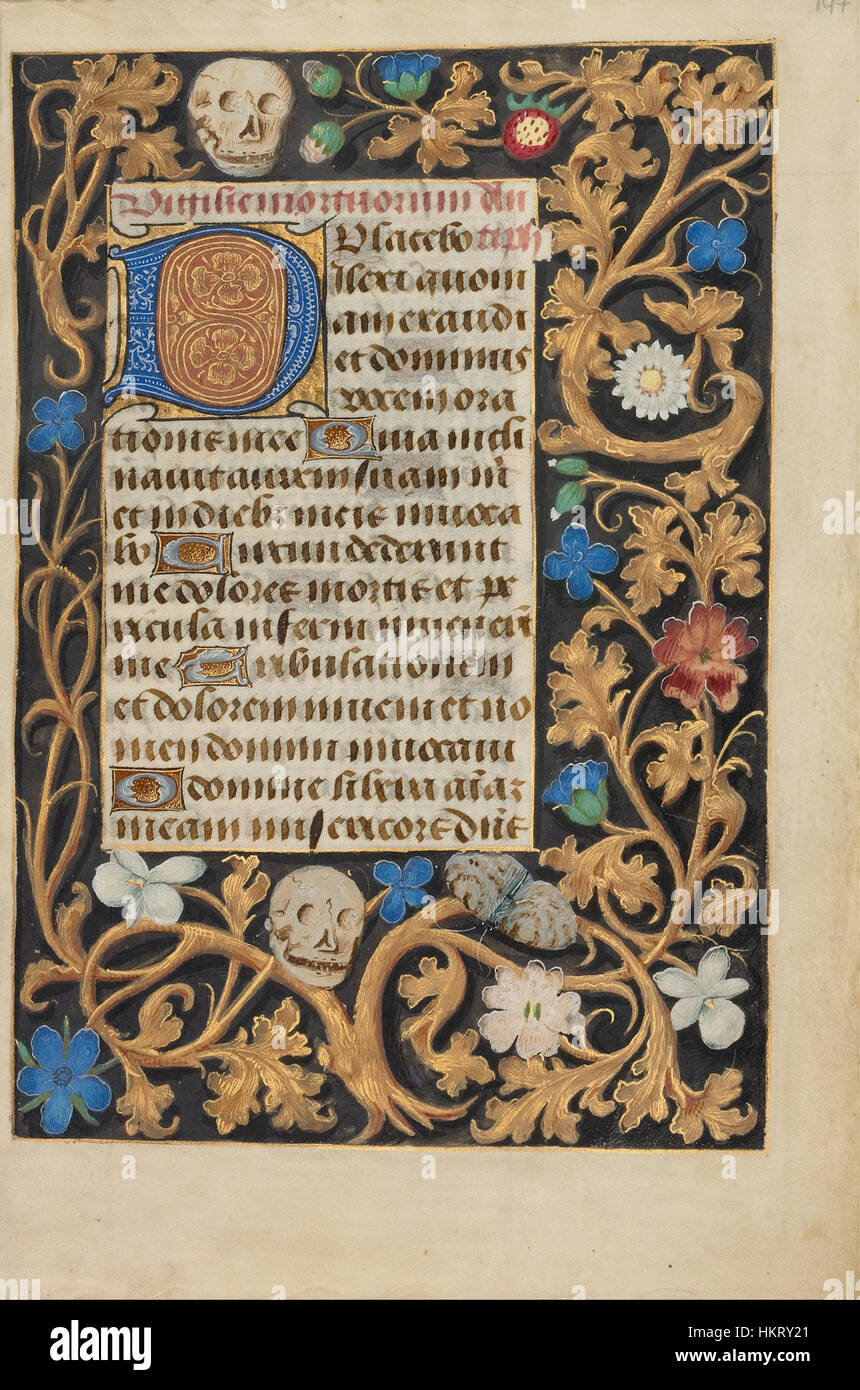 147
Vigilie mortuorum an
Placebo ps
D Ilexi quoni
am exaudi
et dominus
vocem ora
tionis mee Quia incli
nauit aurem suam m̄
et in diebꝫ meis inuoca
bo Circundederunt
me dolores mortis et pe
ricula inferni inuenerūt
me Tribulationem
et dolorem inueni et no
men domini inuocaui
O domine libera aīaz
meam misericors dn̄s
alamy
Image ID: HKRY21
www.alamy.com